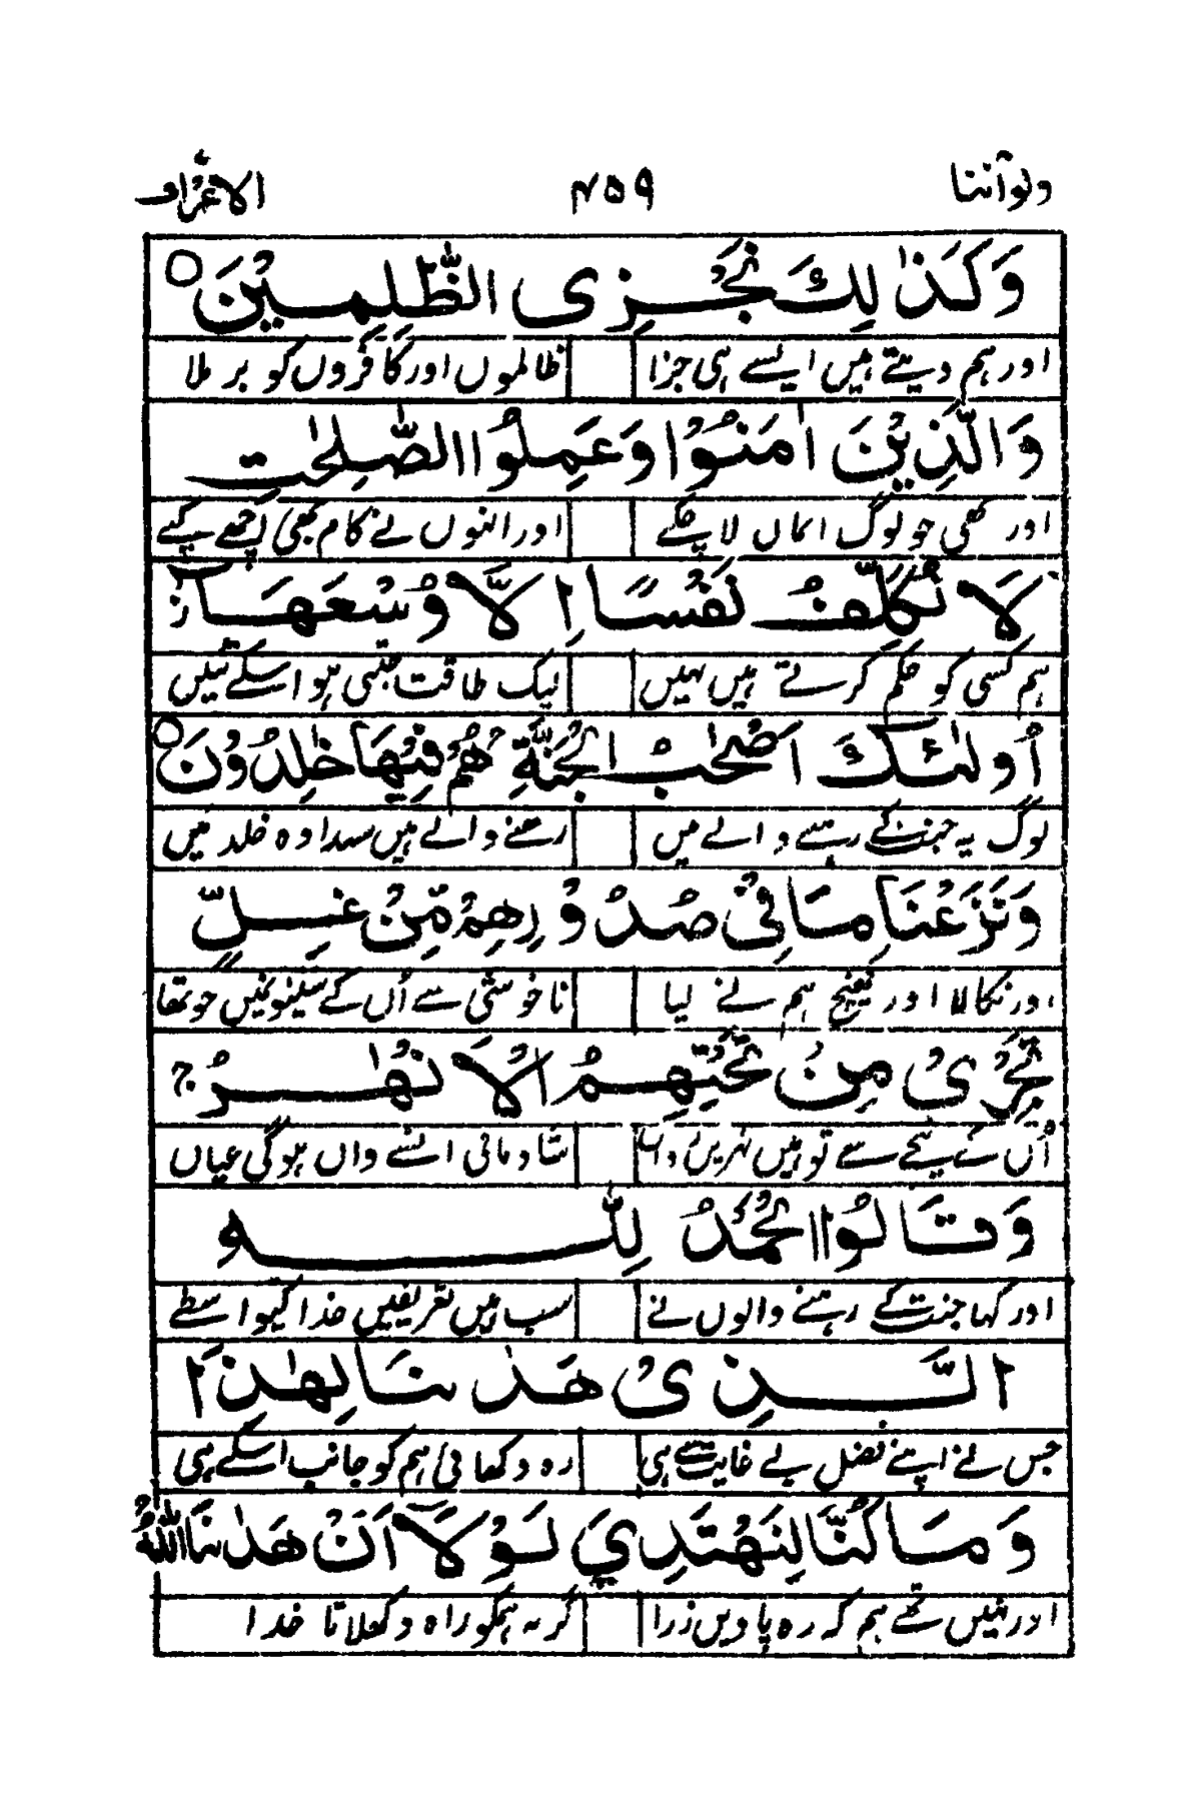 ولو أننا ۴۵۹ الاعراف
وَكَذٰلِكَ نَجْزِى الظّٰلِمِيْنَ ○
اور ہم دیتے ہیں ایسے ہی جزا ظالموں اور کافروں کو بر ملا
وَالَّذِيْنَ اٰمَنُوْا وَعَمِلُوا الصّٰلِحٰتِ
اور جو لوگ ایماں لا چکے اور انہوں نے کام بھی اچھے کیے
لَا نُكَلِّفُ نَفْسًا اِلَّا وُسْعَهَآ ز
ہم کسی کو حکم کرتے ہیں نہیں لیک طاقت جتنی ہو اسکے تئیں
اُولٰٓئِكَ اَصْحٰبُ الْجَنَّةِ هُمْ فِيْهَا خٰلِدُوْنَ ○
لوگ یہ جنت کے رہنے والے ہیں رہنے والے ہیں سدا وہ خلد میں
وَنَزَعْنَا مَا فِىْ صُدُوْرِهِمْ مِّنْ غِلٍّ
اور نکالا اور کھینچ ہم نے لیا ناخوشی سے اُن کے سینوں میں جو تھا
تَجْرِىْ مِنْ تَحْتِهِمُ الْاَنْهٰرُ ج
اُن کے نیچے سے تو ہیں نہریں رواں شادمانی انسے واں ہوگی عیاں
وَقَالُوا الْحَمْدُ لِلّٰهِ
اور کہا جنت کے رہنے والوں نے سب ہیں تعریفیں خدا کیواسطے
الَّذِىْ هَدٰىنَا لِهٰذَا
جس نے اپنے فضل بے غایت سے ہی رہ دکھائی ہم کو جانب اسکے ہی
وَمَا كُنَّا لِنَهْتَدِيَ لَوْلَآ اَنْ هَدٰىنَا اللّٰهُ
اور نہیں تھے ہم کہ رہ پاویں ذرا گر نہ ہمکو راہ دکھلاتا خدا